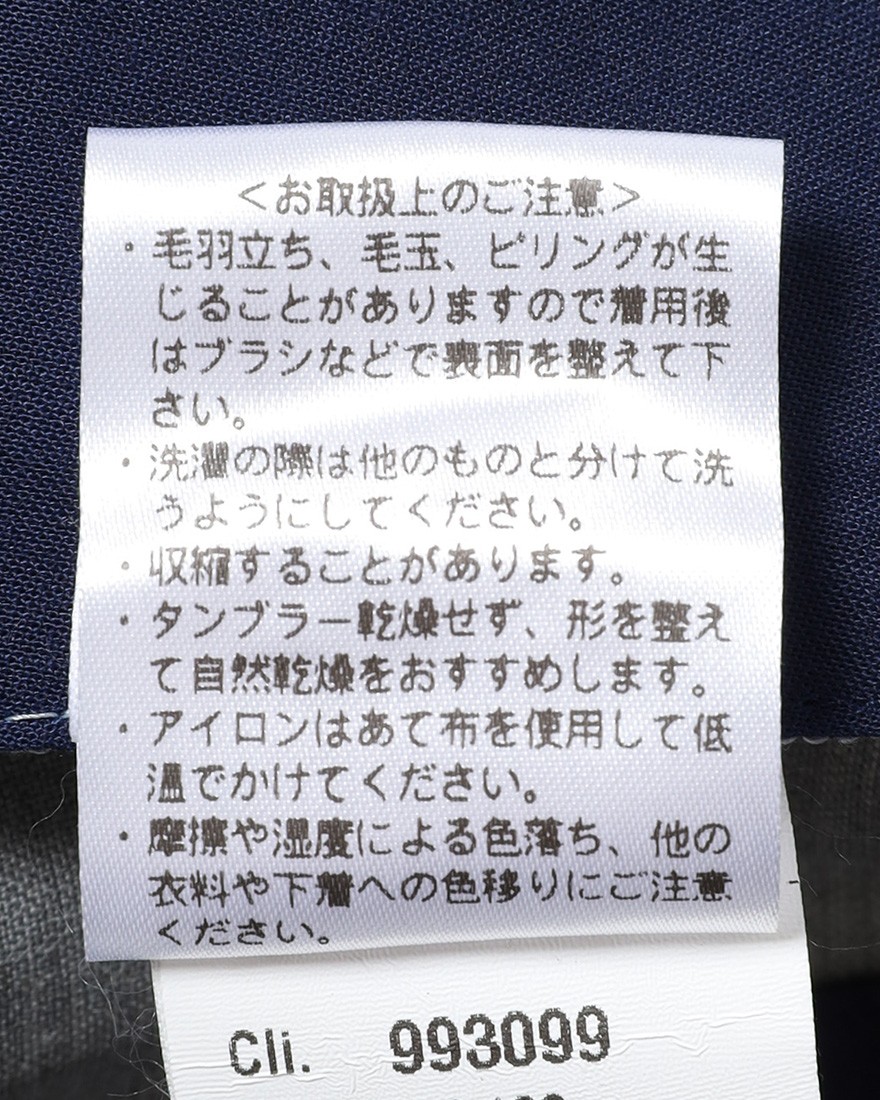 <お取扱上のご注意>
・毛羽立ち、毛玉、ピリングが生
じることがありますので着用後
はブラシなどで表面を整えて下
さい。
・洗濯の際は他のものと分けて洗
うようにしてください。
・収縮することがあります。
・タンブラー乾燥せず、形を整え
て自然乾燥をおすすめします。
・アイロンはあて布を使用して低
温でかけてください。
・摩擦や湿度による色落ち、他の
衣料や下着への色移りにご注意
ください。
Cli. 993099